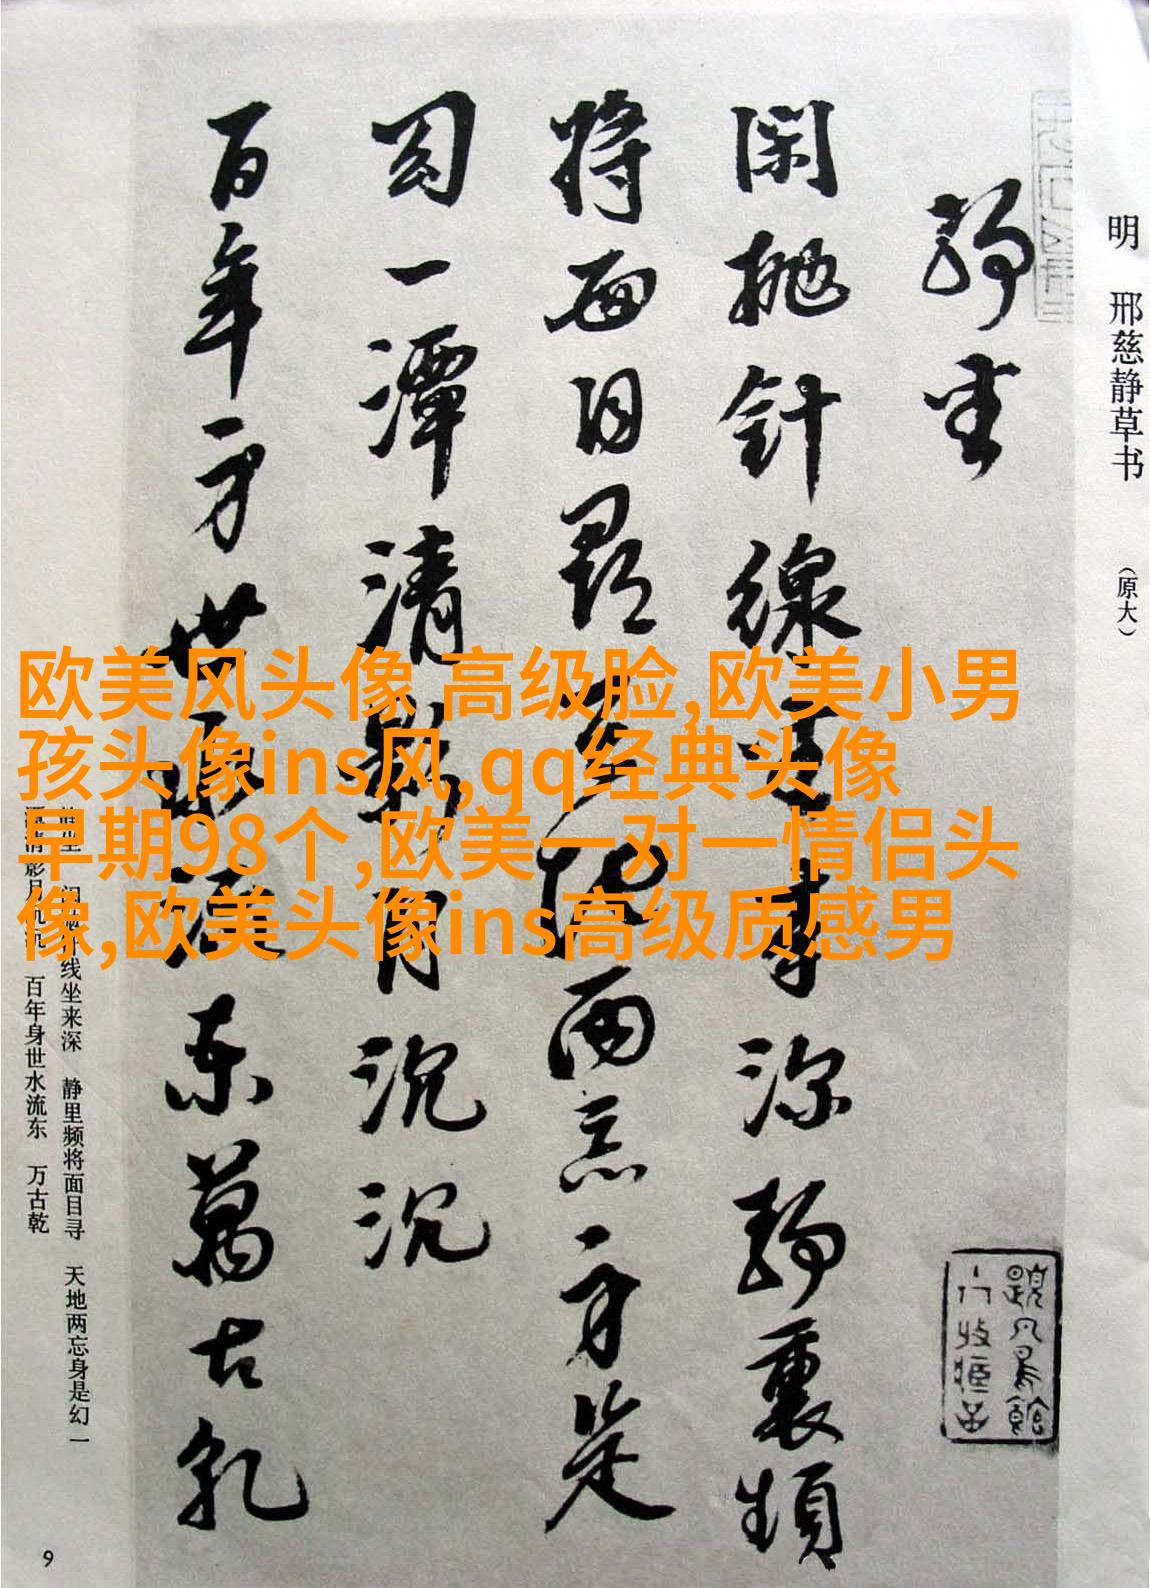 明 邢慈静草书 （原大）
静坐
闲抛针線坐来深静裏頻
将面目尋天地两忘身是
幻一潭清影月沉沉
百年身世水流东萬古乾
欧美风头像 高级脸,欧美小男
孩头像ins风,qq经典头像
早期98个,欧美一对一情侣头
像,欧美头像ins高级质感男
线坐来深 静里频将面目寻 天地两忘身是幻一
影月 百年身世水流东 万古乾
9